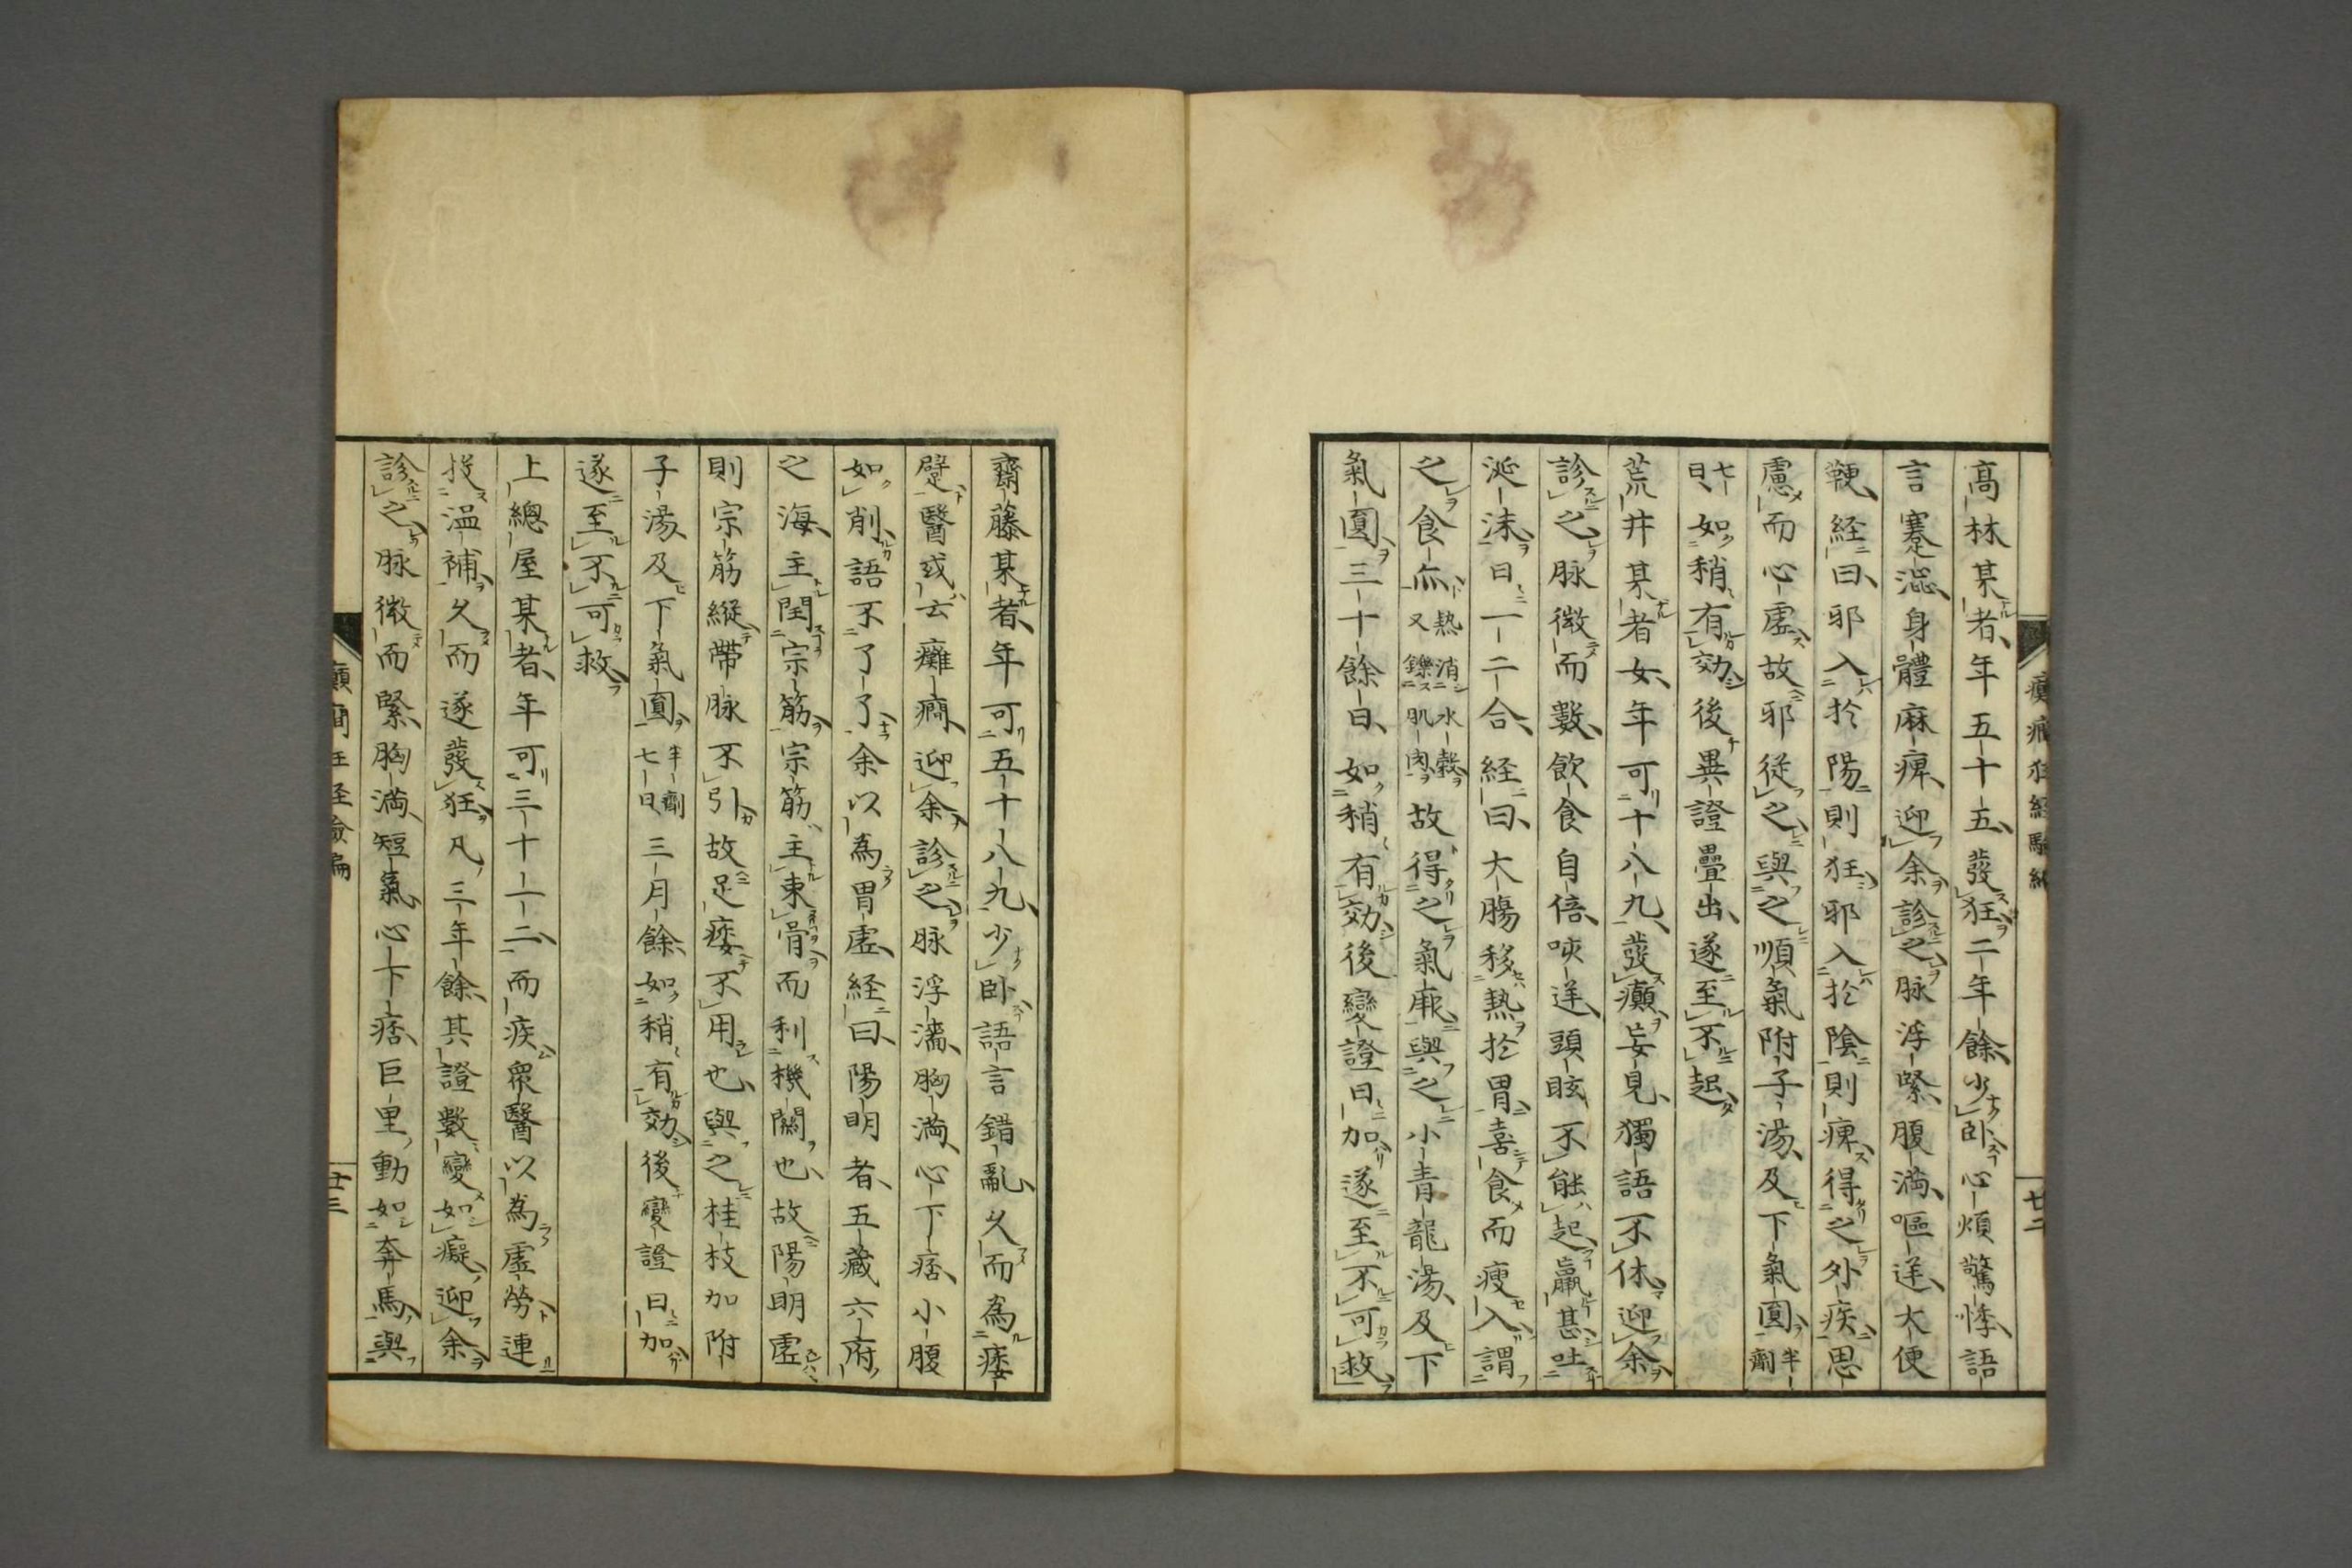 癲癇狂經驗編
廿二
高林某者、年五十五、發狂二年餘、少臥、心煩驚悸、語
言蹇澁、身體麻痺、迎余診之、脉浮緊、腹滿、嘔逆、大便
鞕、経曰、邪入於陽則狂、邪入於陰則痺、得之外疾思
慮而心虛、故邪從之、與之順氣附子湯、及下氣圓、半劑
七日、如稍有効、後異證疊出、遂至不起、
荒井某者女、年可十八九、發癲妄見、獨語不休、迎余
診之、脉微而數、飲食自倍、咲逆、頭眩不能起、羸甚、吐
涎沫、日一二合、経曰、大膓移熱於胃、喜食而瘦入、謂
之食㑊、又熱消鑠肌肉水穀、故得之氣厥、與之小青龍湯、及下
氣圓、三十餘日、如稍有効、後變證日加、遂至不可救、
齋藤某者、年可五十八九、少臥、語言錯亂、久而為痿
躄、醫或云癱癇、迎余診之、脉浮濇、胸滿、心下痞、小腹
如削、語不了了、余以為胃虛、経曰、陽明者、五藏六府
之海、主閏宗筋、宗筋主束骨而利機關也、故陽明虛
則宗筋縱、帶脉不引、故足痿不用也、與之桂枝加附
子湯、及下氣圓、半劑七日、三月餘、如稍有効、後變證日加、
遂至不可救、
上總屋某者、年可三十一二、而疾、衆醫以為虛勞、連
投溫補、久而遂發狂、凡三年餘、其證數變、如癡、迎余
診之、脉微而緊、胸滿、短氣、心下痞、巨里動如奔馬、與
癲癇狂經驗編
廿三